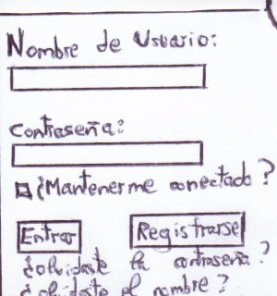 Nombre de Usuario:
Contraseña:
¿Mantenerme conectado?
Entrar Registrarse
¿olvidaste la contraseña?
¿olvidaste el nombre?